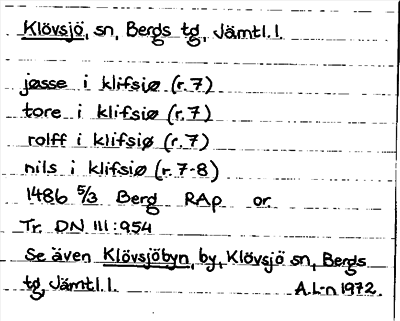 Klövsjö, sn, Bergs tg, Jämtl. l.
jøsse i klifsiø (r. 7)
tore i klifsiø (r. 7)
rolff i klifsiø (r. 7)
nils i klifsiø (r. 7-8)
1486 5/3 Berg RAp or.
Tr. DN III: 954
Se även Klövsjöbyn, by, Klövsjö sn, Bergs
tg, Jämtl. l. A. L-n 1972.